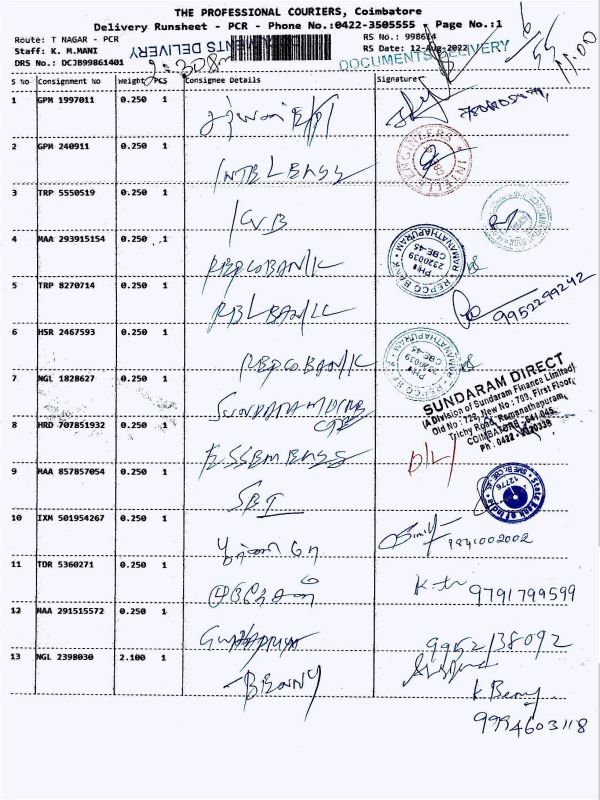 THE PROFESSIONAL COURIERS, Coimbatore
Delivery Runsheet - PCR - Phone No.:0422-3505555 Page No.:1
Route: T NAGAR - PCR
RS No.: 998614
Staff: K. M.MANI
RS Date: 12-Aug-2022
DOCUMENTS DELIVERY
DRS No.: DCJB99861401
11.00
S No Consignment No Weight PCS Consignee Details Signature
1 GPM 1997011 0.250 1
2 GPM 240911 0.250 1
INTELLI ENGINEERS
3 TRP 5550519 0.250 1 KVB
4 MAA 293915154 0.250 1 REPCO BANK
REPCO BANK RAMANATHAPURAM CBE-45 PH: 2320039
5 TRP 8270714 0.250 1 RBL BANK 9952299242
6 HSR 2467593 0.250 1 REPCO BANK
REPCO BANK RAMANATHAPURAM CBE-45 PH: 2320039
7 NGL 1828627 0.250 1
SUNDARAM DIRECT
(A Division of Sundaram Finance Limited)
Old No : 728, New No : 709, First Floor,
Trichy Road, Ramanathapuram,
COIMBATORE - 641 045.
Ph : 0422 - 2320339
8 HRD 707851932 0.250 1 D/L
9 MAA 857857054 0.250 1 SBI
State Bank of India 12776
10 IXM 501954267 0.250 1 1841002002
11 TDR 5360271 0.250 1 9791799599
12 MAA 291515572 0.250 1 9952138092
13 NGL 2398030 2.100 1 Benny
K Benny
9994603118